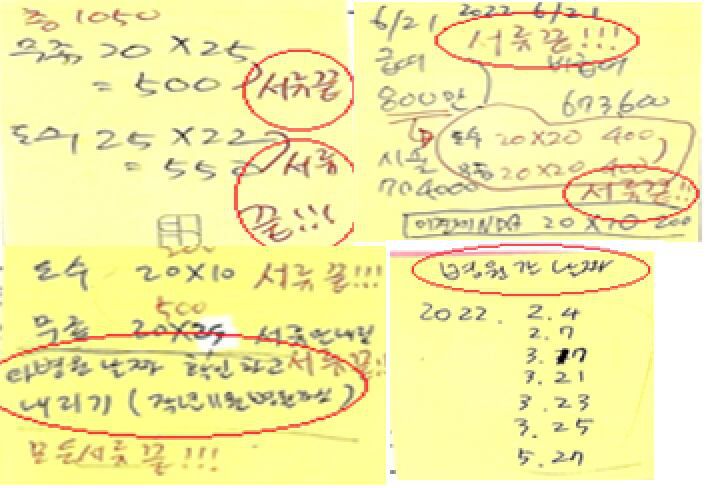 총 1050
무릎 20 X 25
= 500 서류끝
도수 25 X 22
= 550 서류
끝!!!
6/21 2022 6/21
서류끝!!!
급여 비급여
800만 673600
도수 20X20 400
시술 20X20 400
704000 서류끝!!
NDA 20 X 10 200
200
도수 20X10 서류끝!!!
500
무릎 20X25 서류안내림
타병원날짜 확인하고 서류끝!!
내리기 (작년11월병원
모든서류끝!!!
병원간날짜
2022. 2.4
2.7
3.17
3.21
3.23
3.25
5.27